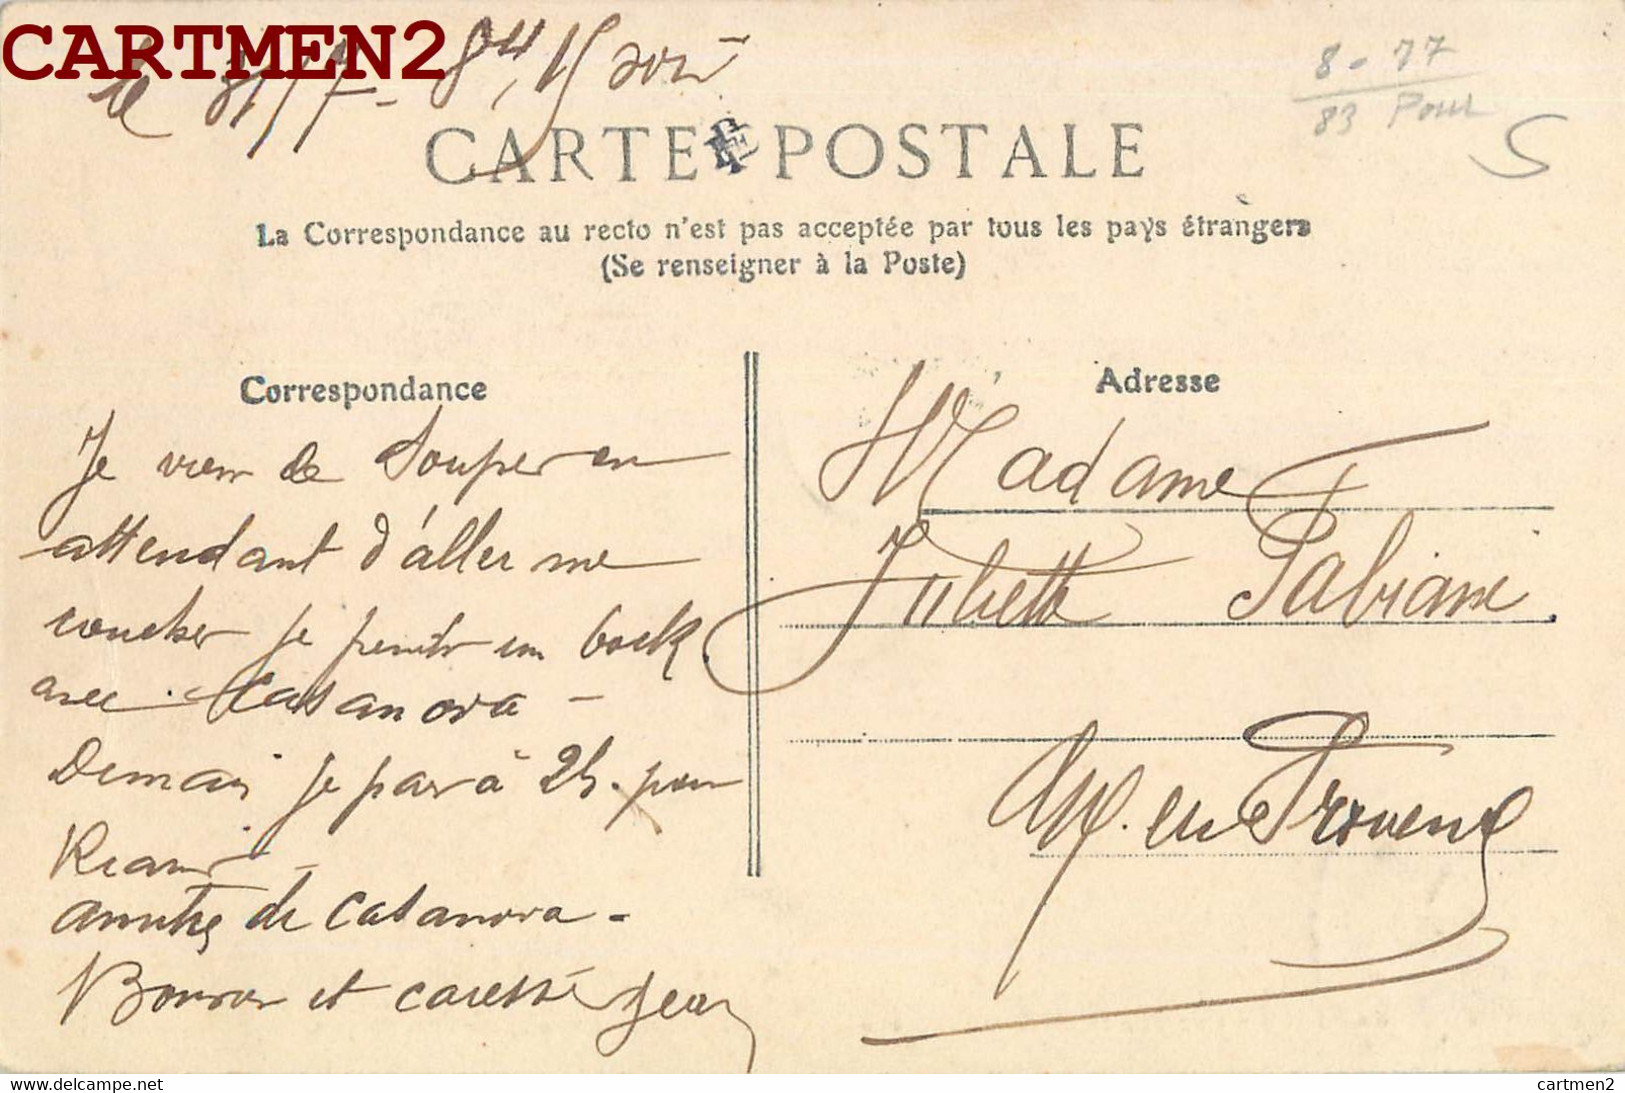 CARTMEN2
le 31/7 - 8H, 15 soir
8-77
83 Pour
S
CARTE POSTALE
La Correspondance au recto n'est pas acceptée par tous les pays étrangers
(Se renseigner à la Poste)
Correspondance
Je viens de Souper en
attendant d'aller me
coucher je prends un bock
avec Casanova -
Demain je pars à 2h. pour
Rians -
amitiés de Casanova -
et caresses Jean
Adresse
Madame
Juliette Fabiani
en Provence
www.delcampe.net
cartmen2